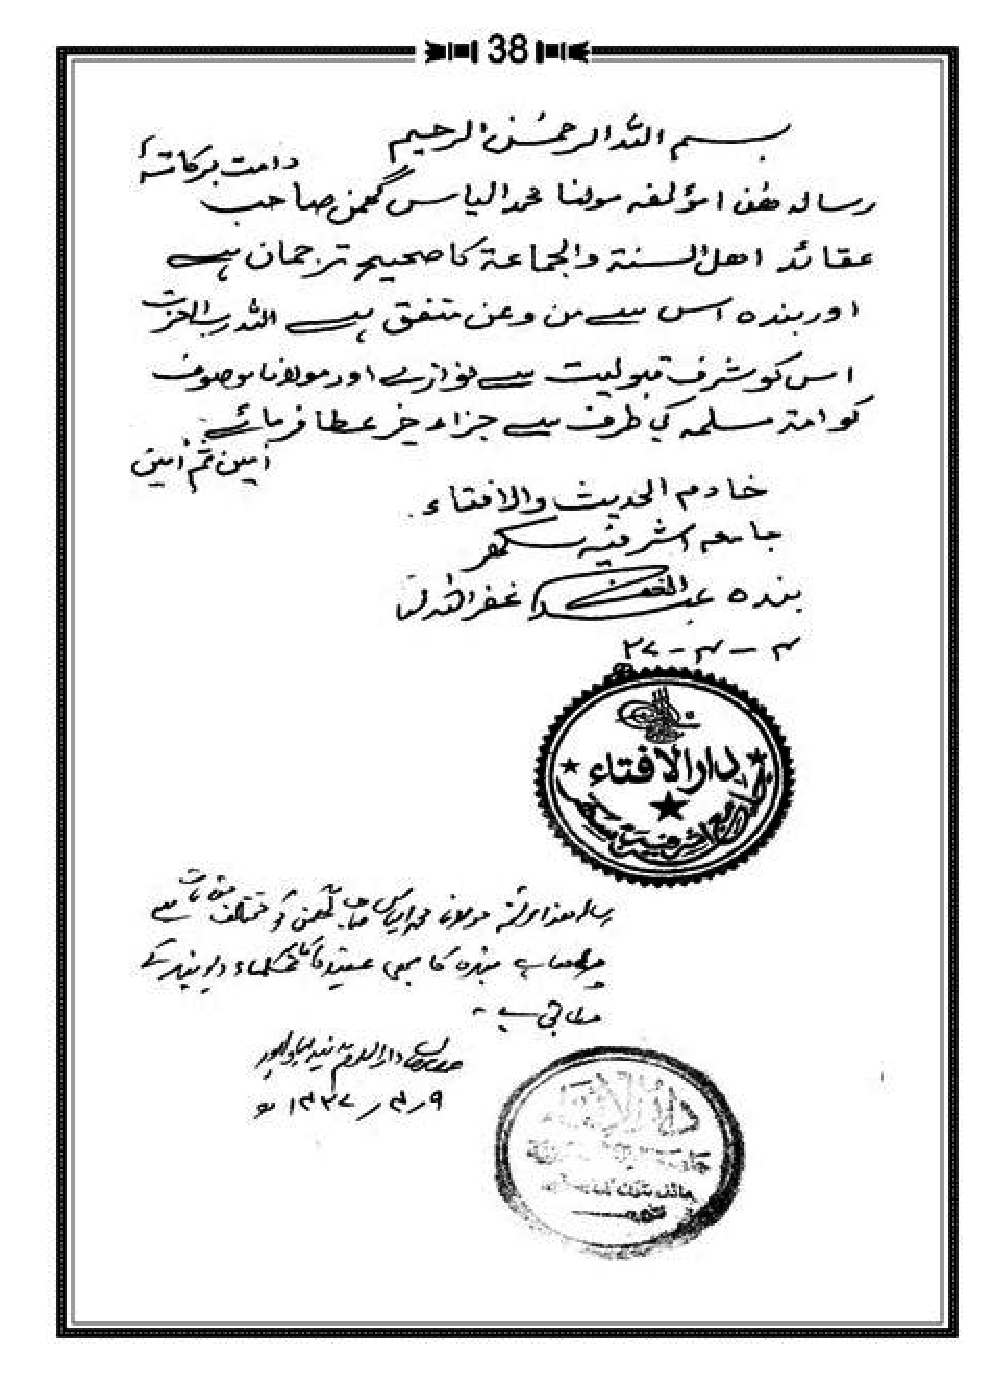 38
بسم اللہ الرحمٰن الرحیم
دامت برکاتہ
رسالہ ھٰذا مؤلفہ مولانا محمد الیاس گھمن صاحب
عقائد اھل السنۃ والجماعۃ کا صحیح ترجمان ہے
اور بندہ اس سے من وعن متفق ہے اللہ رب العزت
اس کو شرف قبولیت سے نوازے اور مولانا موصوف
کو امتہ مسلمہ کی طرف سے جزاء خیر عطا فرمائے
آمین ثم آمین
خادم الحدیث والافتاء
جامعہ اشرفیہ سکھر
بندہ غفر اللہ لہ
۴ - ۴ - ۳۷
دارالافتاء
جامعہ اشرفیہ سکھر
رسالہ ھذا مولانا محمد الیاس گھمن کو مختلف مقامات سے
بندہ کا بھی عقیدہ علماء دیوبند کے
مطابق ہے
دارالعلوم
۹ / ۴ / ۱۴۳۷ ھ
دارالافتاء